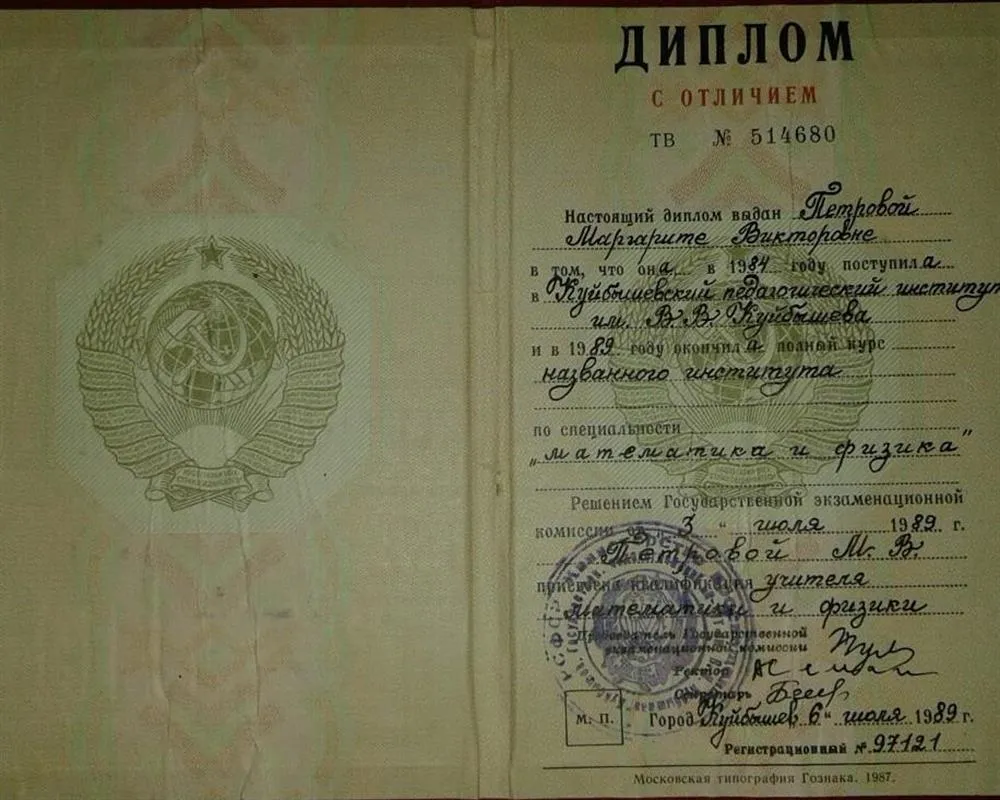 ДИПЛОМ
С ОТЛИЧИЕМ
ТВ № 514680
Настоящий диплом выдан Петровой
Маргарите Викторовне
в том, что она в 1984 году поступила
в Куйбышевский педагогический институт
им. В.В. Куйбышева
и в 1989 году окончила полный курс
названного института
по специальности
„математика и физика"
Решением Государственной экзаменационной
комиссии от 3 " июля 1989 г.
Петровой М. В.
присвоена квалификация учителя
математики и физики
Председатель Государственной
экзаменационной комиссии
Ректор
Секретарь
М. П.
Город Куйбышев, 6 " июля 1989 г.
Регистрационный № 97121
Московская типография Гознака. 1987.